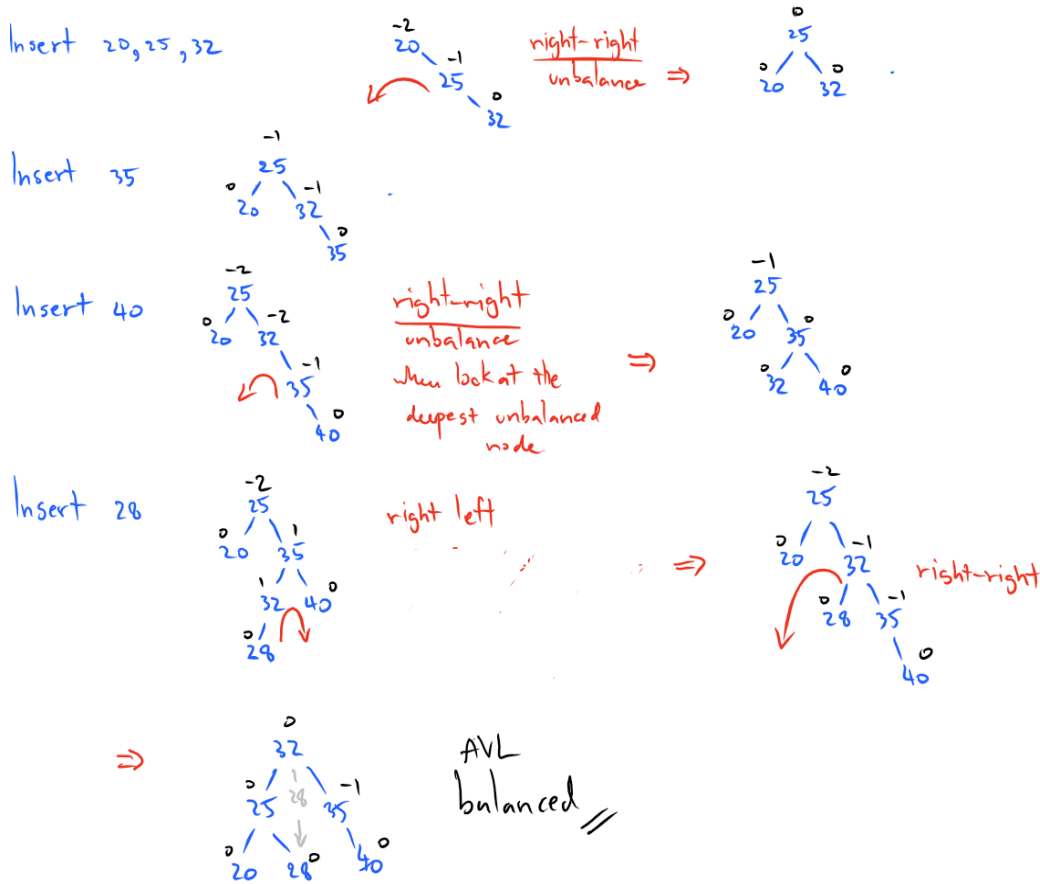 Insert 20, 25, 32
-2
20
-1
25
0
32
right-right
unbalance ⇒
0
25
0 0
20 32
Insert 35
-1
25
0 -1
20 32
0
35
Insert 40
-2
25
0 -2
20 32
-1
35
0
40
right-right
unbalance
when look at the
deepest unbalanced
node
⇒
-1
25
0 0
20 35
0 0
32 40
Insert 28
-2
25
0 1
20 35
1 0
32 40
0
28
right left
⇒
-2
25
0 -1
20 32
right-right
0 -1
28 35
0
40
⇒
0
32
0 28 -1
25 35
0 0 0
20 28 40
AVL
balanced